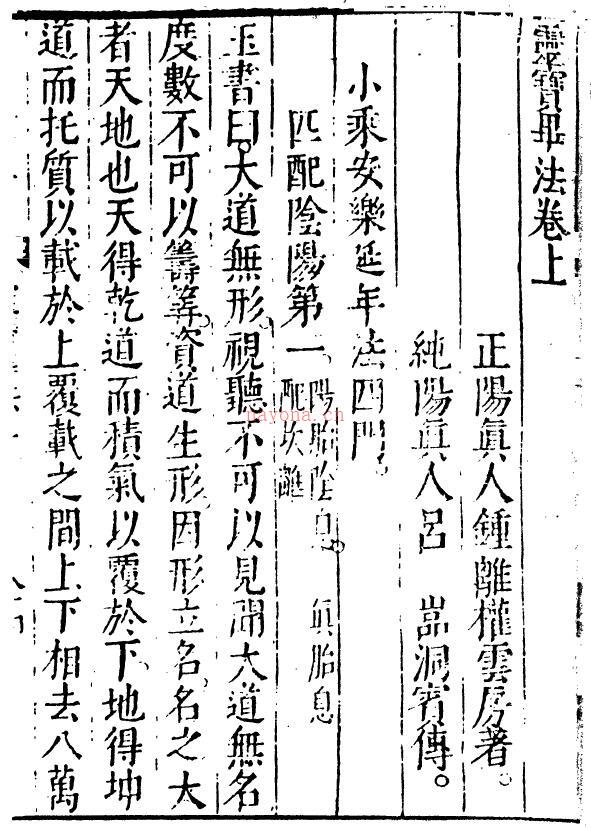 靈寶畢法卷上
正陽眞人鍾離權雲房著。
純陽眞人呂 嵓洞賓傳。
小乘安樂延年法四門。
匹配陰陽第一 陽胎陰息。 眞胎息
配坎離
玉書曰。大道無形。視聽不可以見聞大道無名
度數不可以籌筭。資道生形。因形立名。名之大
者天地也天得乾道而積氣以覆於下。地得坤
道而托質以載於上覆載之間上下相去八萬
nayona.cn